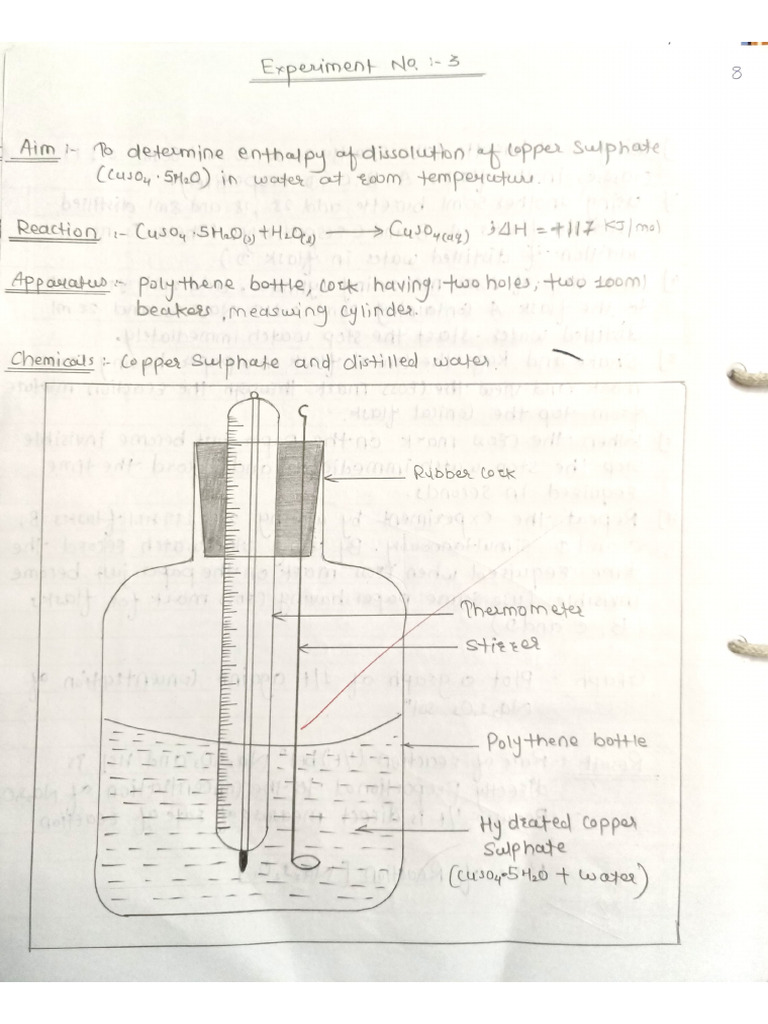 Experiment No. :- 3
8
Aim :- To determine enthalpy of dissolution of Copper Sulphate
(CuSO4 · 5H2O) in water at room temperature.
Reaction :- CuSO4 · 5H2O(s) + H2O(l) → CuSO4(aq) ; ΔH = +117 KJ/mol
Apparatus :- Polythene bottle, cork having two holes, two 100ml
beakers, measuring cylinder.
Chemicals :- Copper Sulphate and distilled water.
Rubber cork
Thermometer
Stirrer
Polythene bottle
Hydrated Copper
Sulphate
(CuSO4·5H2O + water)